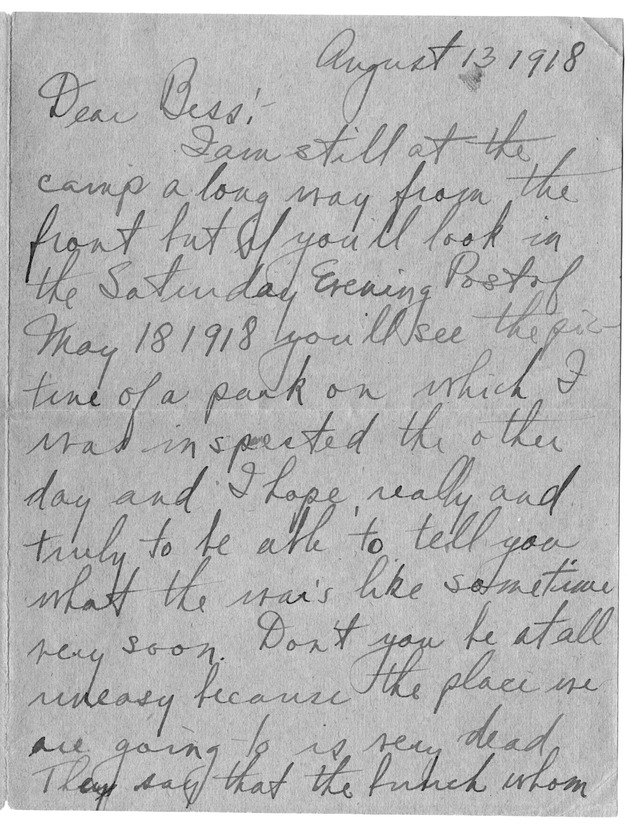 August 13 1918
Dear Bess:-
I am still at the
camp a long way from the
front but if you'll look in
the Saturday Evening Post of
May 18 1918 you'll see the pic-
ture of a park on which I
was inspected the other
day and I hope, really and
truly to be able to tell you
what the war's like sometime
very soon. Don't you be at all
uneasy because the place we
are going to is very dead
They say that the bunch whom